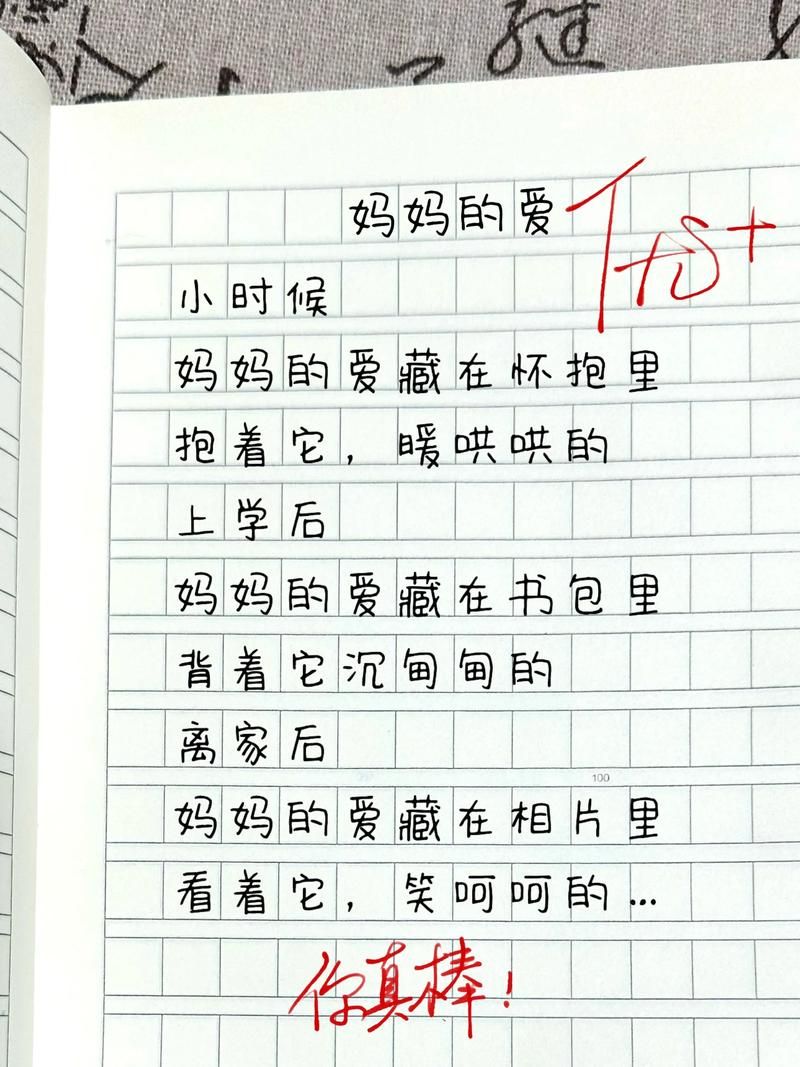 妈妈的爱
优+
小时候
妈妈的爱藏在怀抱里
抱着它，暖哄哄的
上学后
妈妈的爱藏在书包里
背着它沉甸甸的
离家后
100
妈妈的爱藏在相片里
看着它，笑呵呵的...
你真棒！